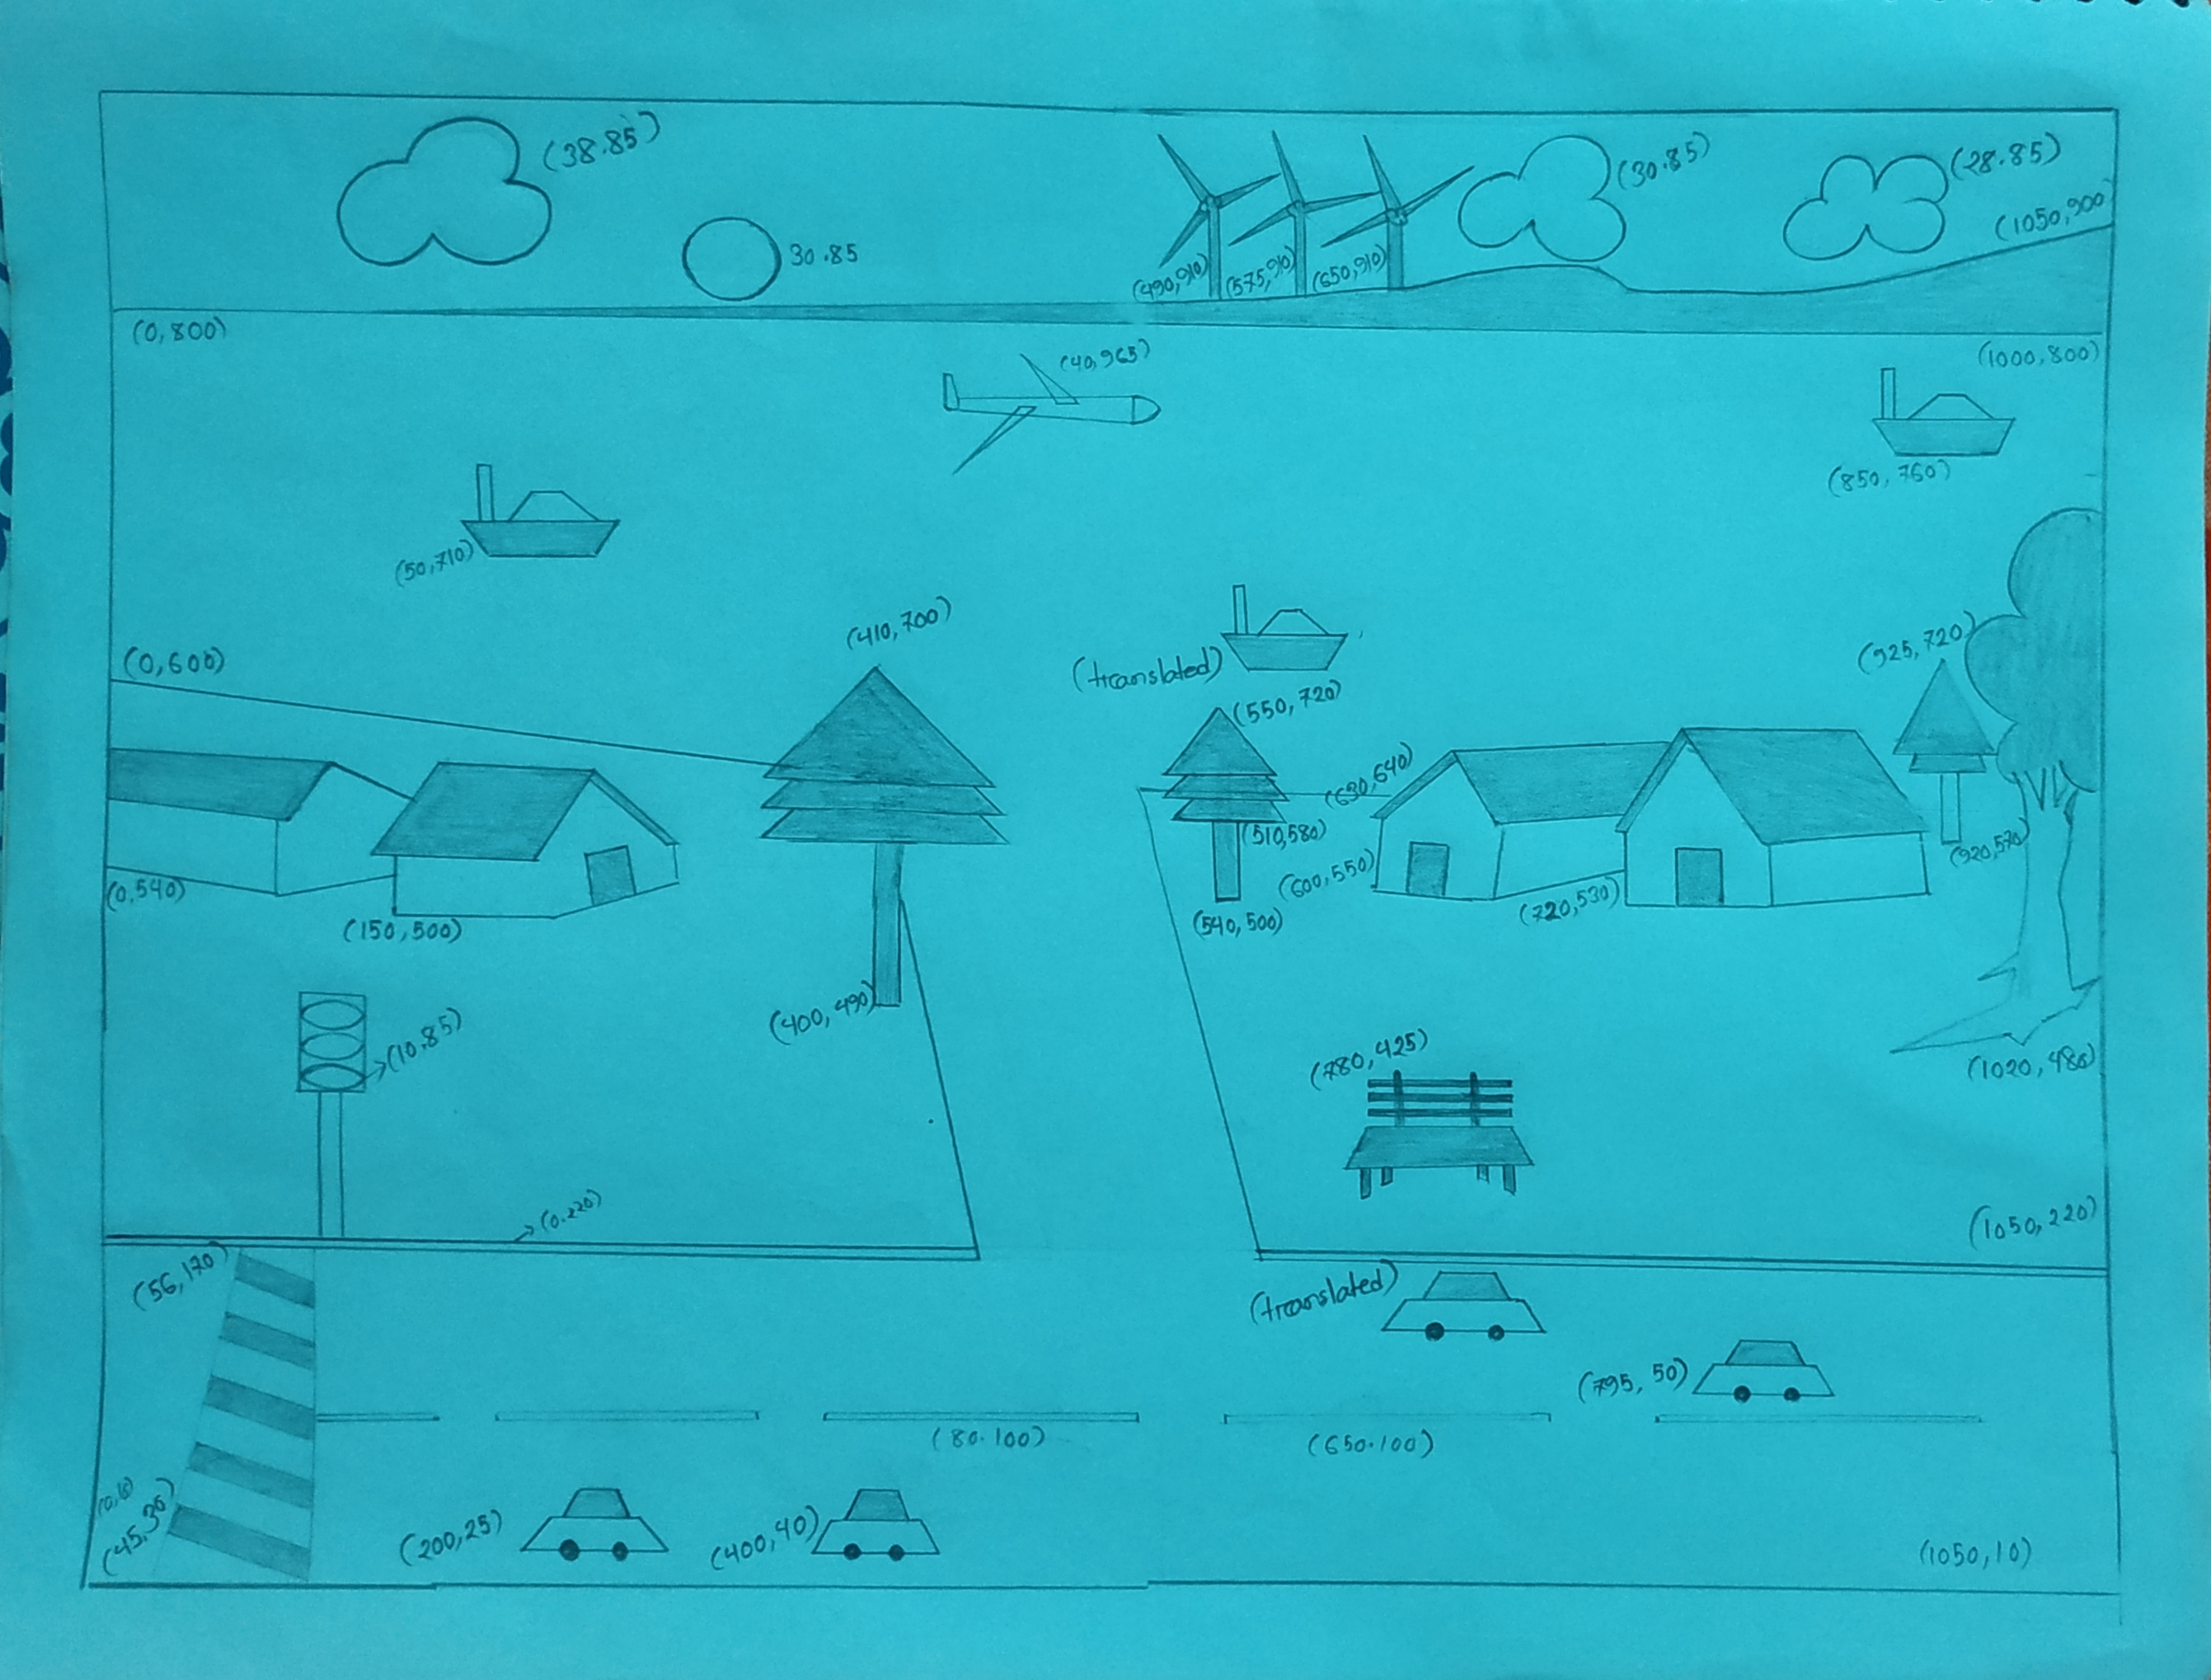 (38.85)
30.85
(490,910)
(575,910)
(650,910)
(30.85)
(28.85)
(1050,900
(0,800)
(40,965)
(1000,800)
(850,760)
(50,710)
(410,700)
(0,600)
(translated)
(550,720)
(925,720)
(630,640)
(510,580)
(600,550)
(720,530)
(920,570)
(540,500)
(0,540)
(150,500)
(400,490)
(10,85)
(780,425)
(1020,480)
(0.220)
(1050,220)
(56,170)
(translated)
(795, 50)
(80.100)
(650.100)
(45,30)
(200,25)
(400,40)
(1050,10)